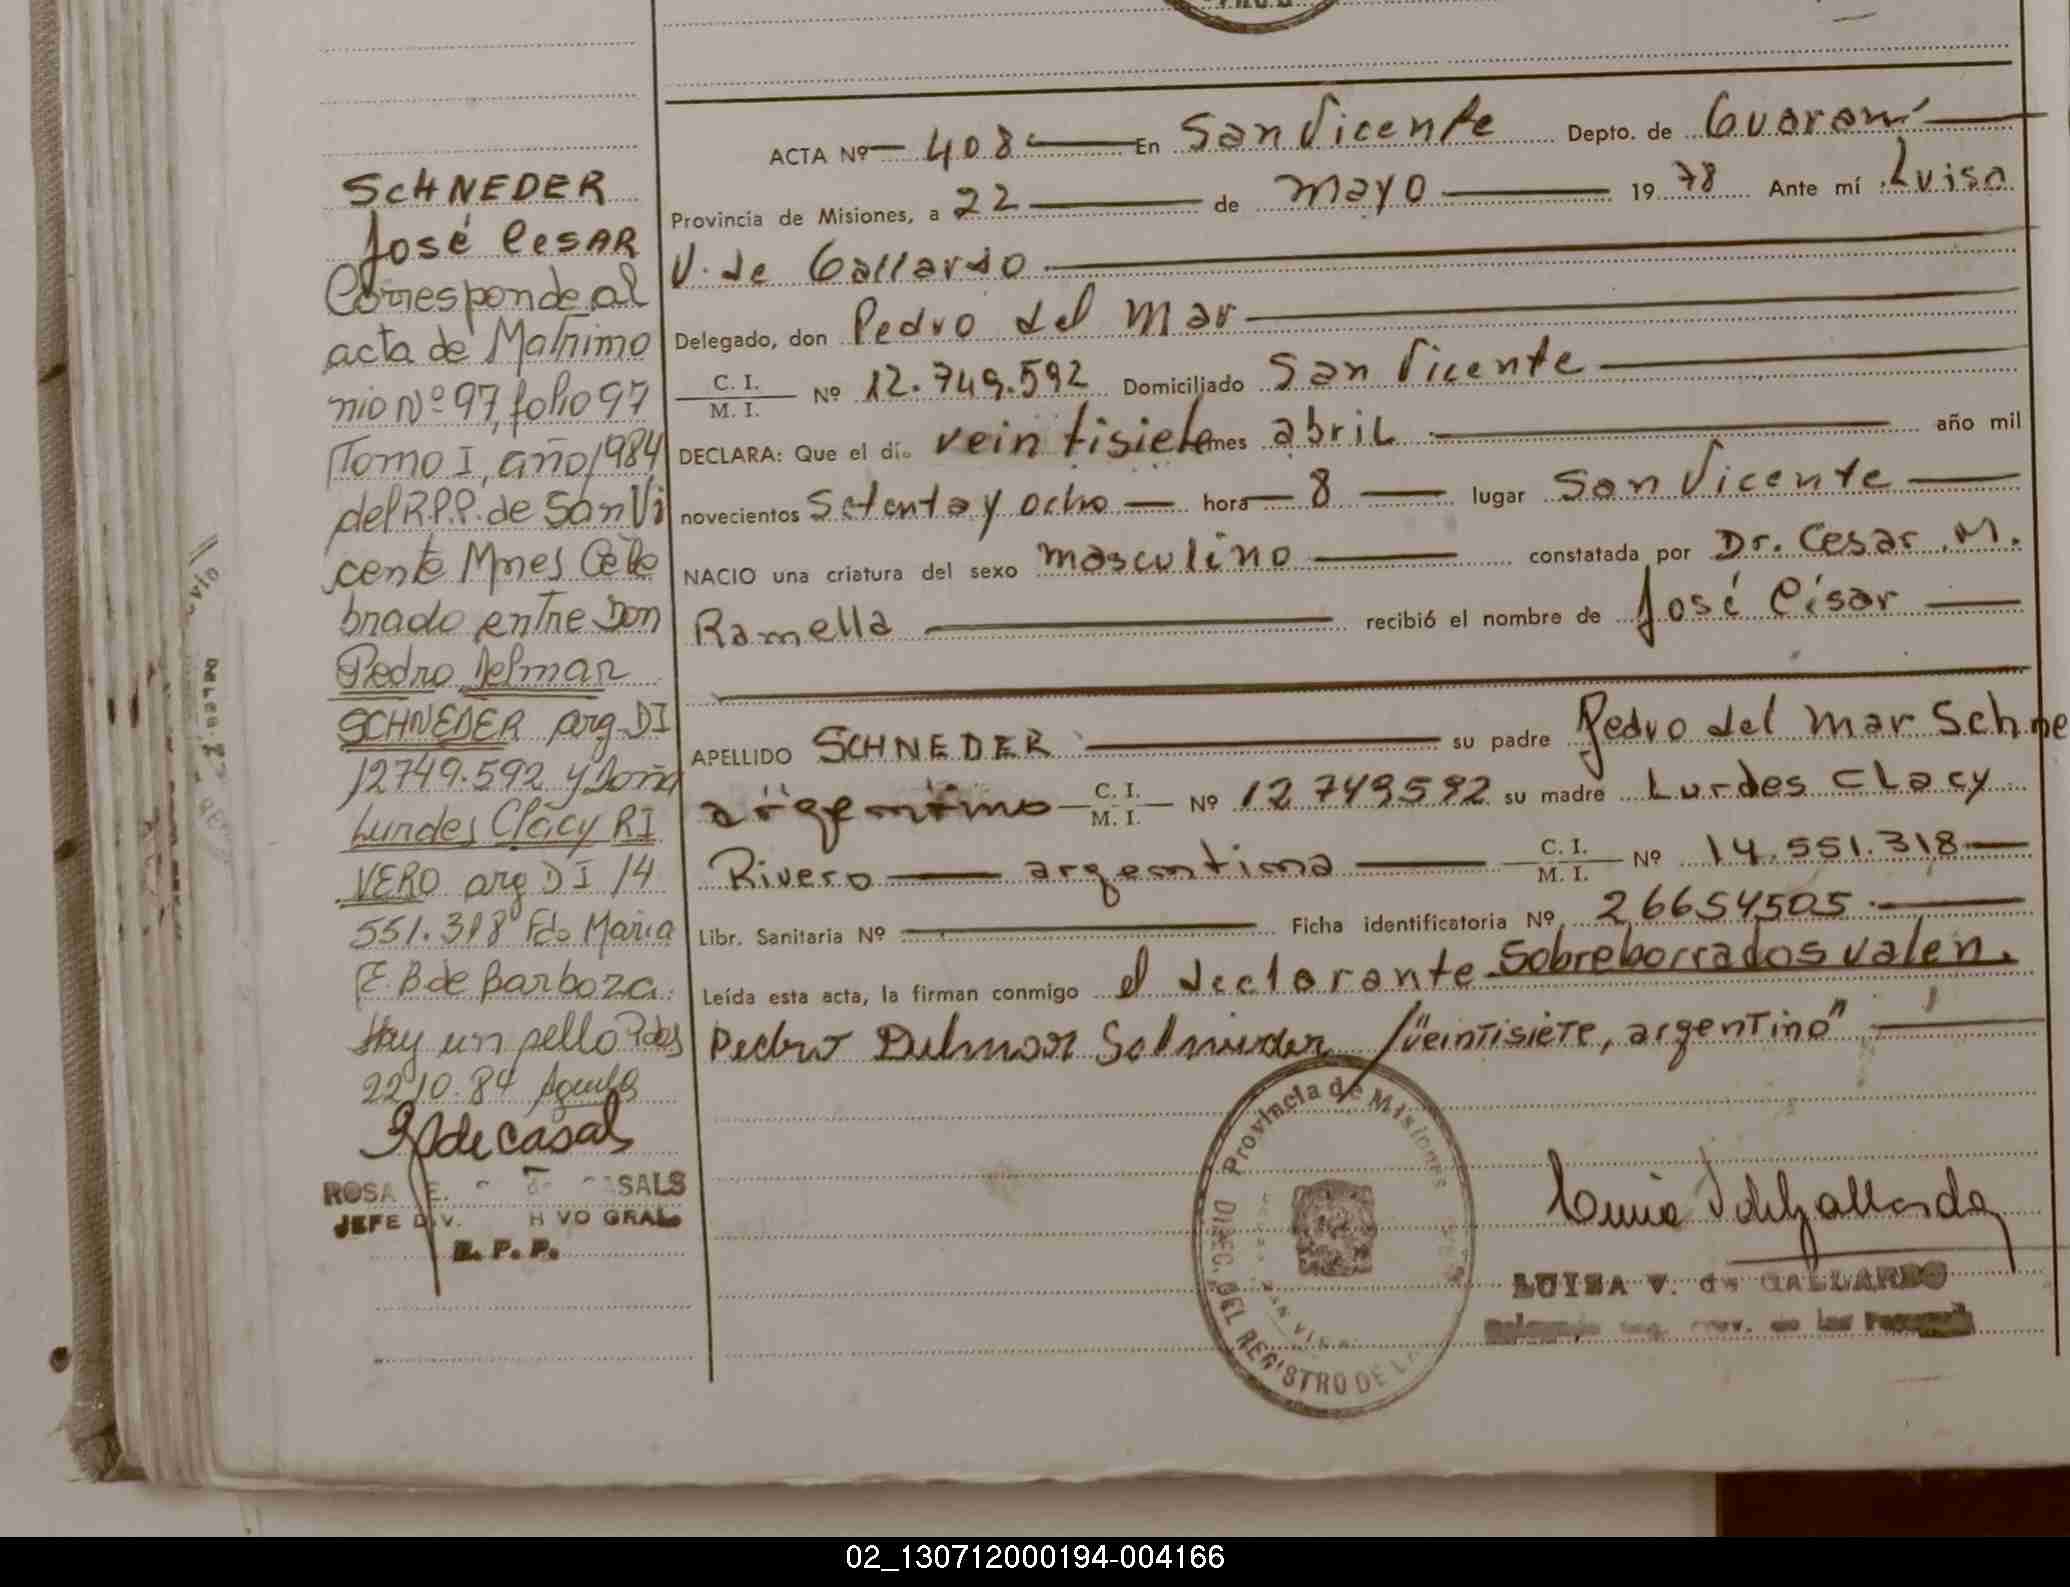 SCHNEDER
José Cesar
Corresponde al
acta de Matrimo
nio Nº 97, folio 97
Tomo I, año 1984
del R.P.P. de San Vi
cente Mnes Cele
brado entre Don
Pedro Delmar
SCHNEDER arg. DI
12749.592 y Doña
Lurdes Clacy RI
VERO arg DI 14
551.318 Fdo Maria
E. B de Barboza.
Hay un sello Pdas
22 10.84
de Casals
ROSA E. de CASALS
JEFE DIV. HIVO GRAL
R. P. P.
ACTA Nº 408 En San Vicente Depto. de Guaraní
Provincia de Misiones, a 22 de mayo 19 78 Ante mí Luisa
V. de Gallardo
Delegado, don Pedro del Mar
C. I. / M. I. Nº 12.749.592 Domiciliado San Vicente
DECLARA: Que el día veintisiete mes abril año mil
novecientos setenta y ocho hora 8 lugar San Vicente
NACIO una criatura del sexo masculino constatada por Dr. Cesar M.
Ramella recibió el nombre de José César
APELLIDO SCHNEDER su padre Pedro del Mar Schne
argentino C. I. / M. I. Nº 12749592 su madre Lurdes Clacy
Rivero argentina C. I. / M. I. Nº 14.551.318
Libr. Sanitaria Nº Ficha identificatoria Nº 26654505
Leída esta acta, la firman conmigo el declarante Sobreborrados valen.
Pedro Delmar Schneder / "veintisiete, argentino"
Provincia de Misiones
DIREC. DEL REGISTRO DE LA
SAN VICE
Luisa V de Gallardo
LUISA V. de GALLARDO
02_130712000194-004166